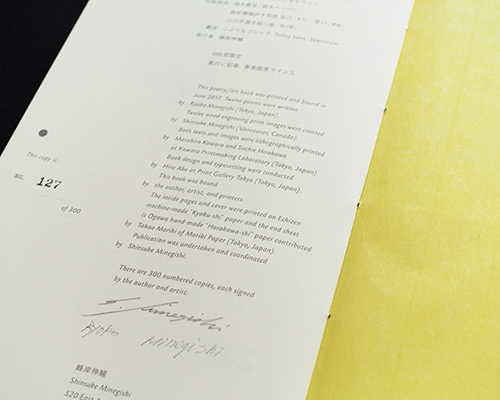 書体 こぶりなゴシック, Today Sans, Spectrum
発行者 峰岸伸輔
300部限定
This poetry/art book was printed and bound in
June 2017. Twelve poems were written
by Kyoko Minegishi (Tokyo, Japan).
Twelve wood engraving print images were created
by Shinsuke Minegishi (Vancouver, Canada).
Both texts and images were lithographically printed
by Masahiro Kawara and Sachie Hirakawa
at Kawara Printmaking Laboratory (Tokyo, Japan).
Book design and typesetting were conducted
by Hiro Abe at Print Gallery Tokyo (Tokyo, Japan).
This book was bound
by the author, artist, and printers.
The inside pages and cover were printed on Echizen
machine-made "Kyoku-shi" paper and the end sheet
is Ogawa hand-made "Hosokawa-shi" paper contributed
by Takao Moriki of Moriki Paper (Tokyo, Japan).
Publication was undertaken and coordinated
by Shinsuke Minegishi.
This copy is:
NO. 127
of 300
There are 300 numbered copies, each signed
by the author and artist.
S. Minegishi
Kyoko Minegishi
峰岸伸輔
Shinsuke Minegishi
520 East